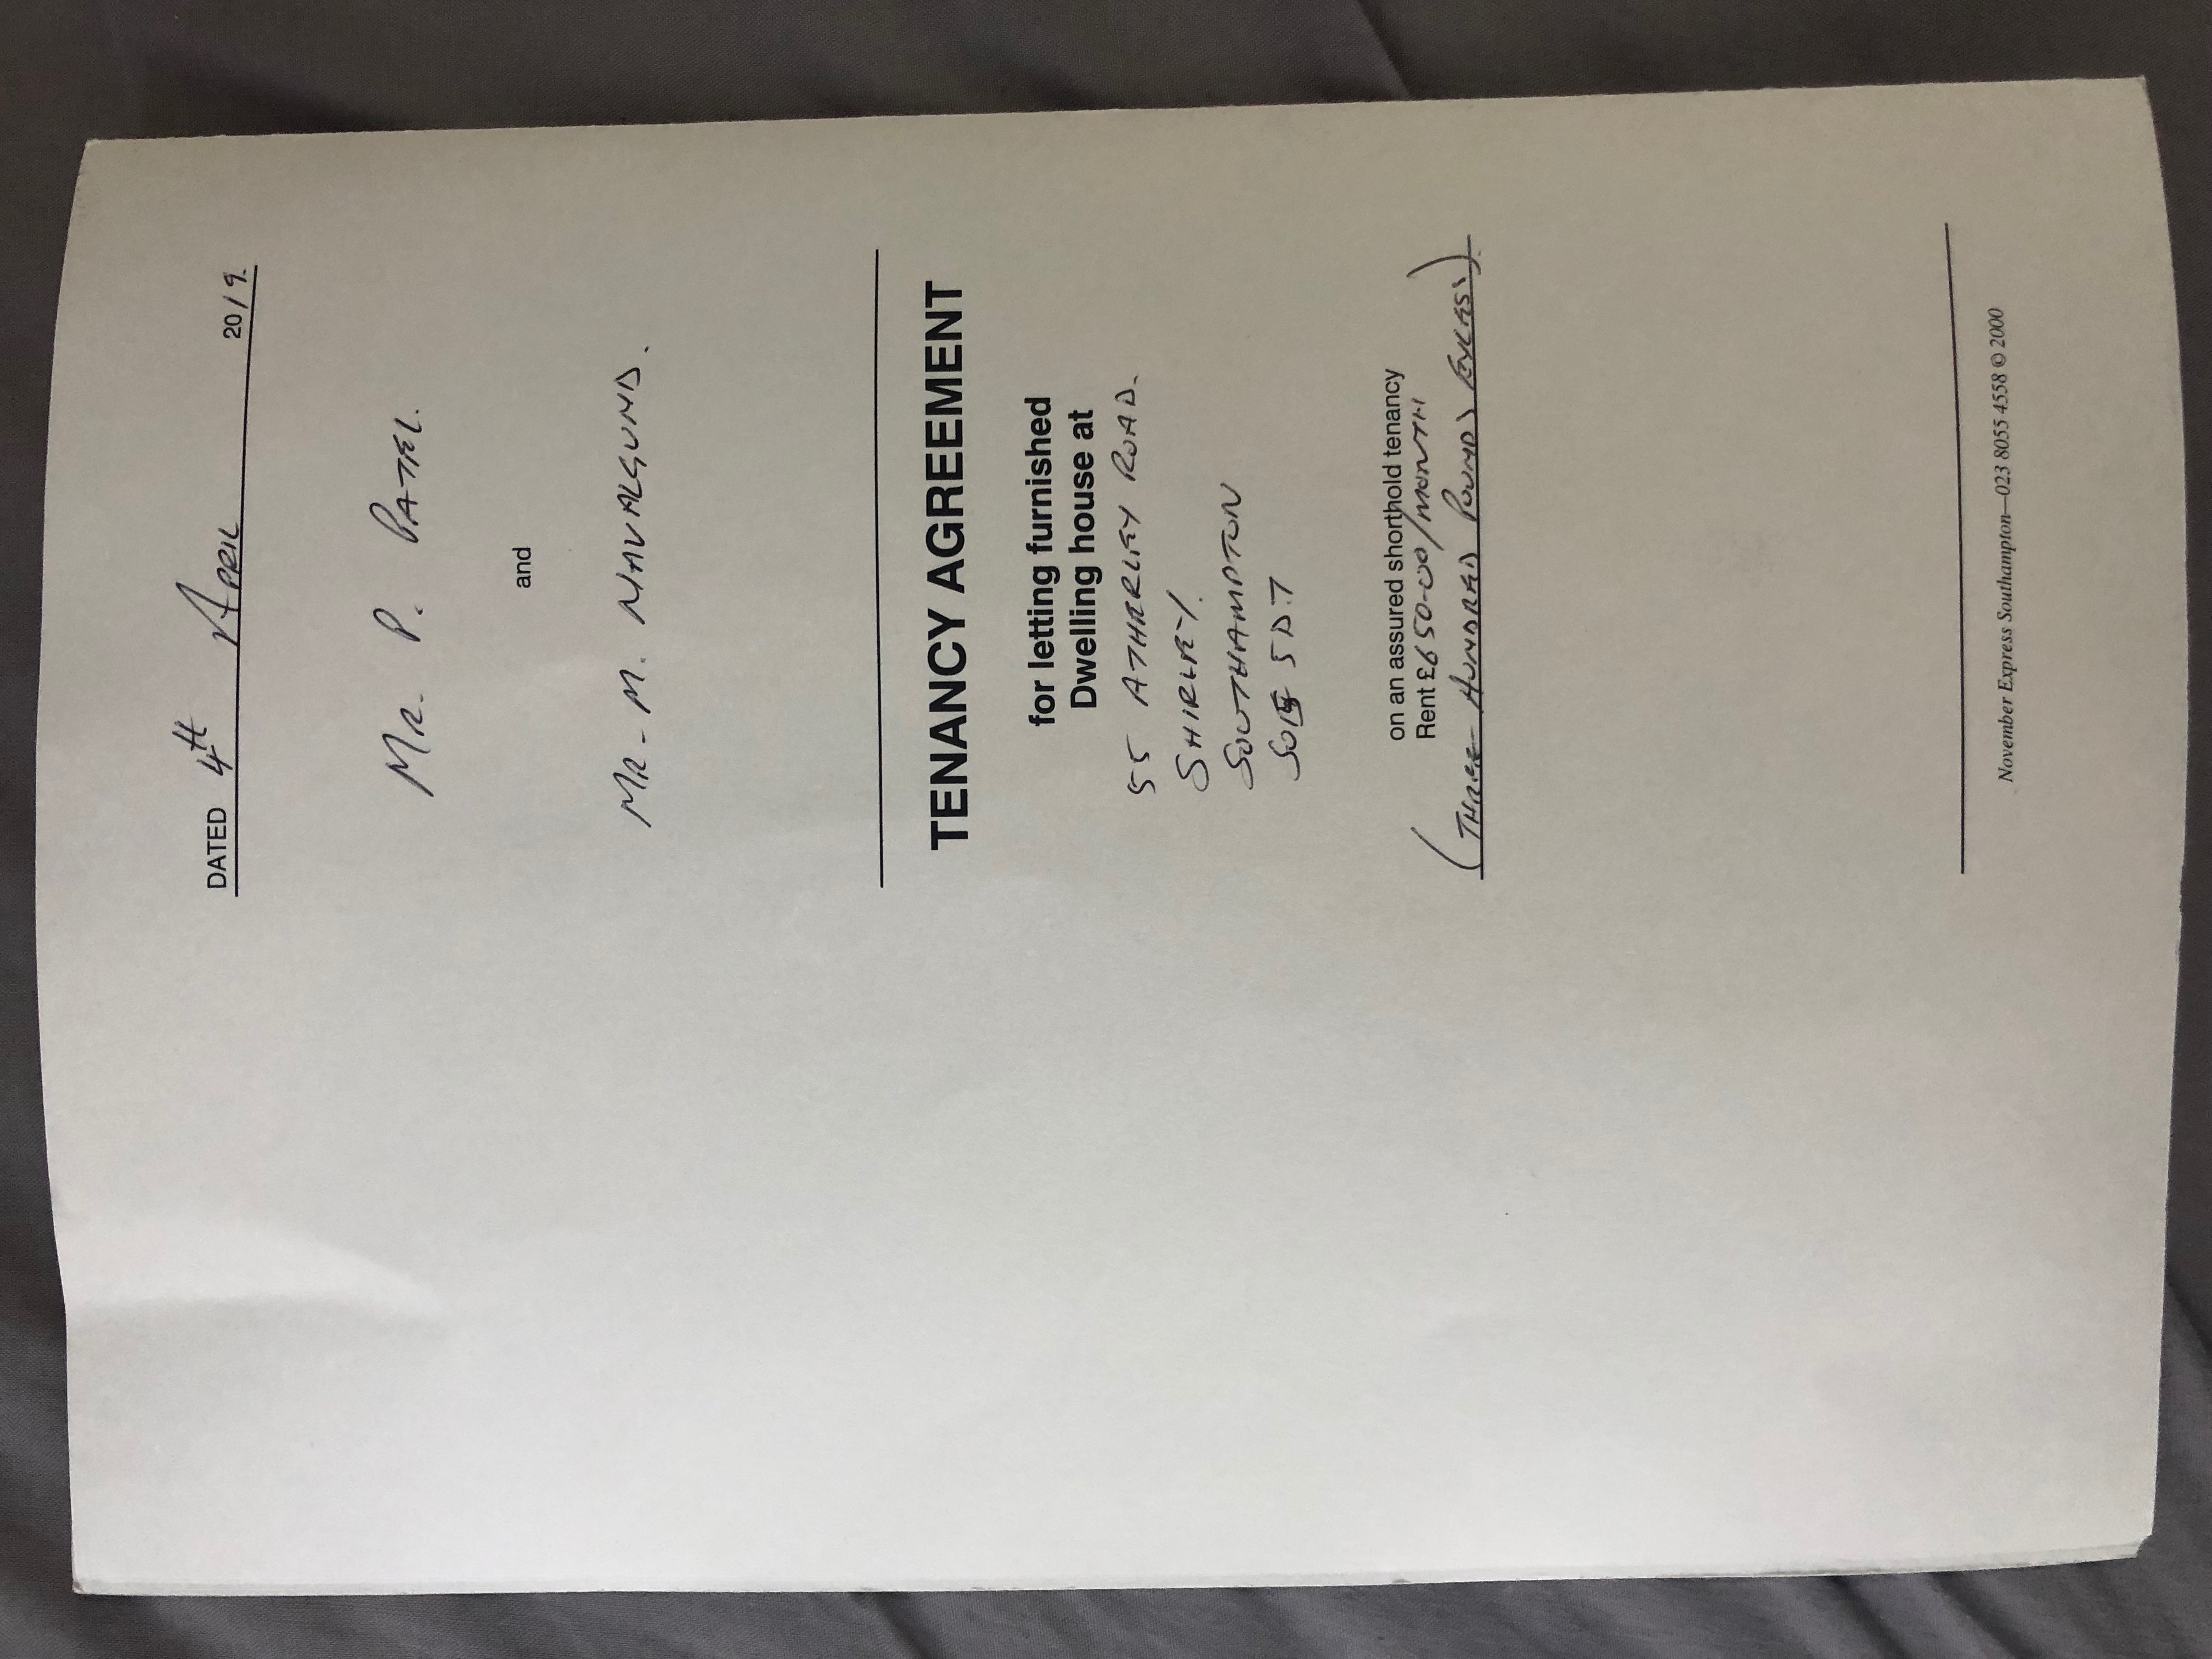 DATED 4TH APRIL 2019.
MR. P. PATEL.
and
MR. M. NAVALGUND.
TENANCY AGREEMENT
for letting furnished
Dwelling house at
55 ATHERLEY ROAD.
SHIRLEY.
SOUTHAMPTON
SO15 5DT
on an assured shorthold tenancy
Rent £650-00/MONTH
(THREE HUNDRED POUNDS EXCESS)
November Express Southampton—023 8055 4558 © 2000